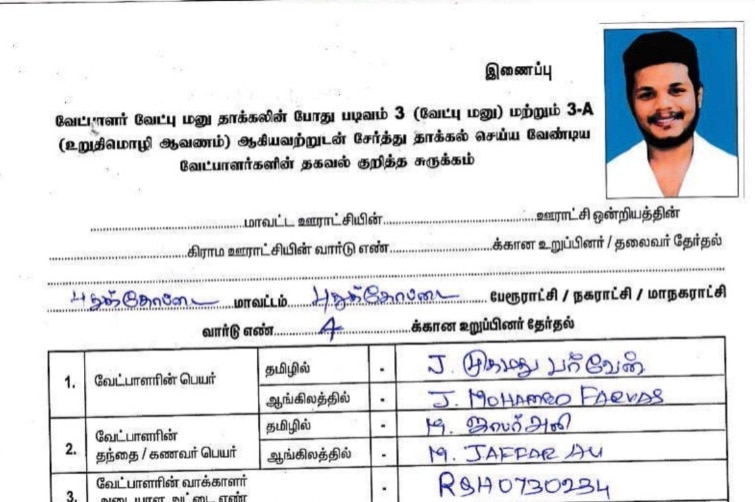 இணைப்பு
வேட்பாளர் வேட்பு மனு தாக்கலின் போது படிவம் 3 (வேட்பு மனு) மற்றும் 3-A
(உறுதிமொழி ஆவணம்) ஆகியவற்றுடன் சேர்த்து தாக்கல் செய்ய வேண்டிய
வேட்பாளர்களின் தகவல் குறித்த சுருக்கம்
மாவட்ட ஊராட்சியின் ஊராட்சி ஒன்றியத்தின்
கிராம ஊராட்சியின் வார்டு எண் க்கான உறுப்பினர் / தலைவர் தேர்தல்
புதுக்கோட்டை மாவட்டம் புதுக்கோட்டை பேரூராட்சி / நகராட்சி / மாநகராட்சி
வார்டு எண் 4 க்கான உறுப்பினர் தேர்தல்
1. வேட்பாளரின் பெயர் தமிழில் - J. முகமது பர்வேஸ்
ஆங்கிலத்தில் - J. MOHAMED FARVAS
2. வேட்பாளரின் தந்தை / கணவர் பெயர் தமிழில் - M. ஜபர்அலி
ஆங்கிலத்தில் - M. JAFFAR ALI
3. வேட்பாளரின் வாக்காளர் அடையாள அட்டை எண் - RSH0730234